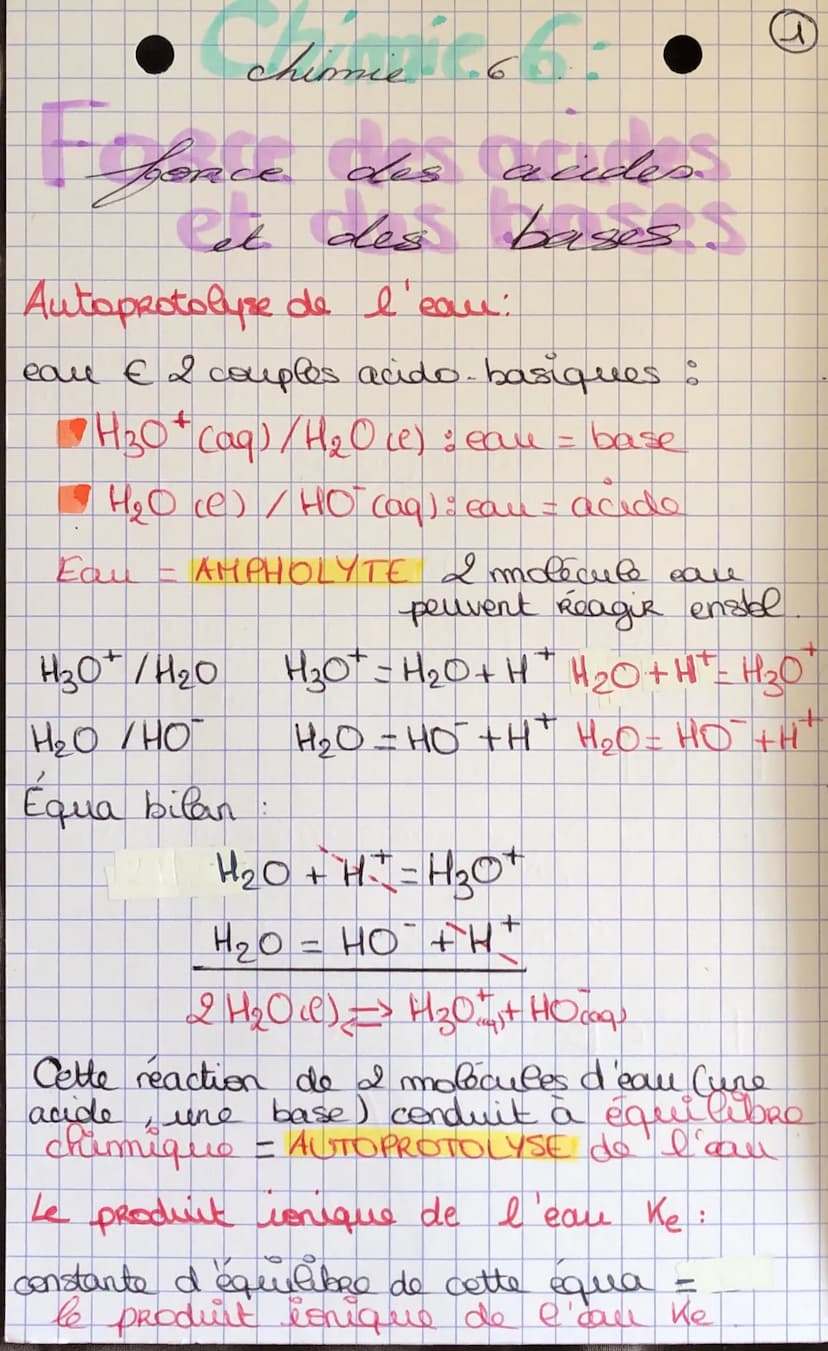 1
Chimie 6 :
Force des acides
et des bases
Autoprotolyse de l'eau :
eau € 2 couples acido-basiques :
H₃O⁺(aq) / H₂O(l) : eau = base
H₂O(l) / HO⁻(aq) : eau = acide
Eau = AMPHOLYTE 2 molécule eau
peuvent réagir ensbl.
H₃O⁺ / H₂O H₃O⁺ = H₂O + H⁺ H₂O + H⁺ = H₃O⁺
H₂O / HO⁻ H₂O = HO⁻ + H⁺ H₂O = HO⁻ + H⁺
Équa bilan :
H₂O + H⁺ = H₃O⁺
H₂O = HO⁻ + H⁺
2 H₂O(l) ⇌ H₃O⁺(aq) + HO⁻(aq)
Cette réaction de 2 molécules d'eau (une
acide, une base) conduit à équilibre
chimique = AUTOPROTOLYSE de l'eau
Le produit ionique de l'eau Ke :
constante d'équilibre de cette équa =
le produit ionique de l'eau Ke.